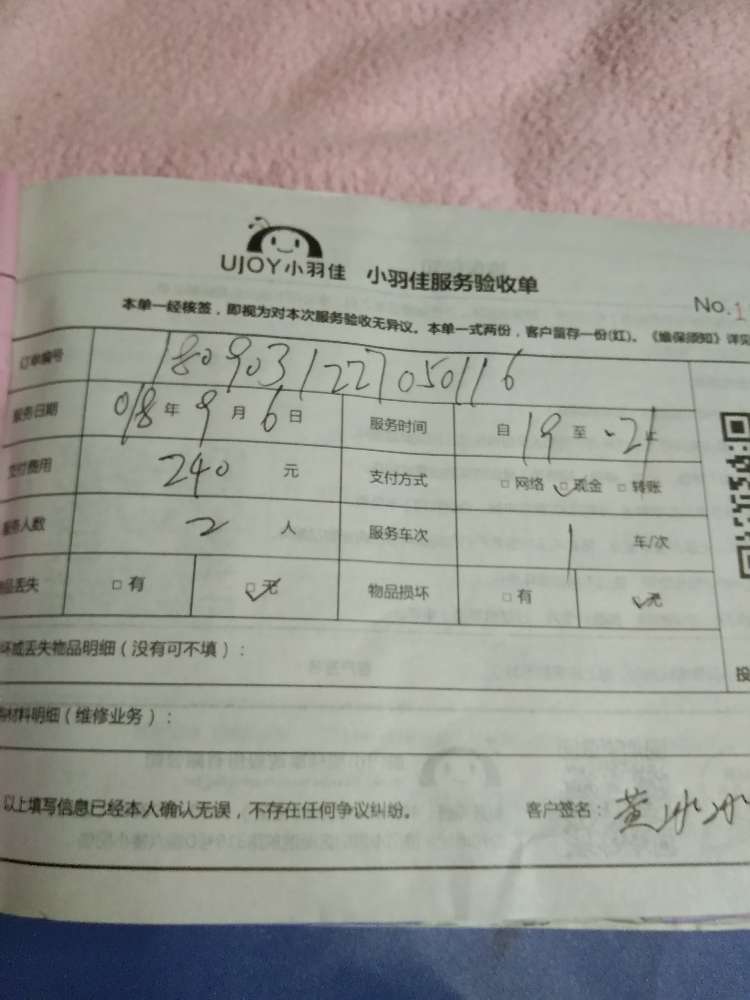 UJOY小羽佳 小羽佳服务验收单
No.1
本单一经核签，即视为对本次服务验收无异议。本单一式两份，客户留存一份(红)。《维保须知》详见
订单编号 1809031227050116
服务日期 018年9月6日 服务时间 自19至21
支付费用 240元 支付方式 □网络 □现金 □转账
服务人数 2人 服务车次 1车/次
品丢失 □有 □无 物品损坏 □有 □无
坏或丢失物品明细（没有可不填）：
投
材料明细（维修业务）：
以上填写信息已经本人确认无误，不存在任何争议纠纷。 客户签名：黄冰冰